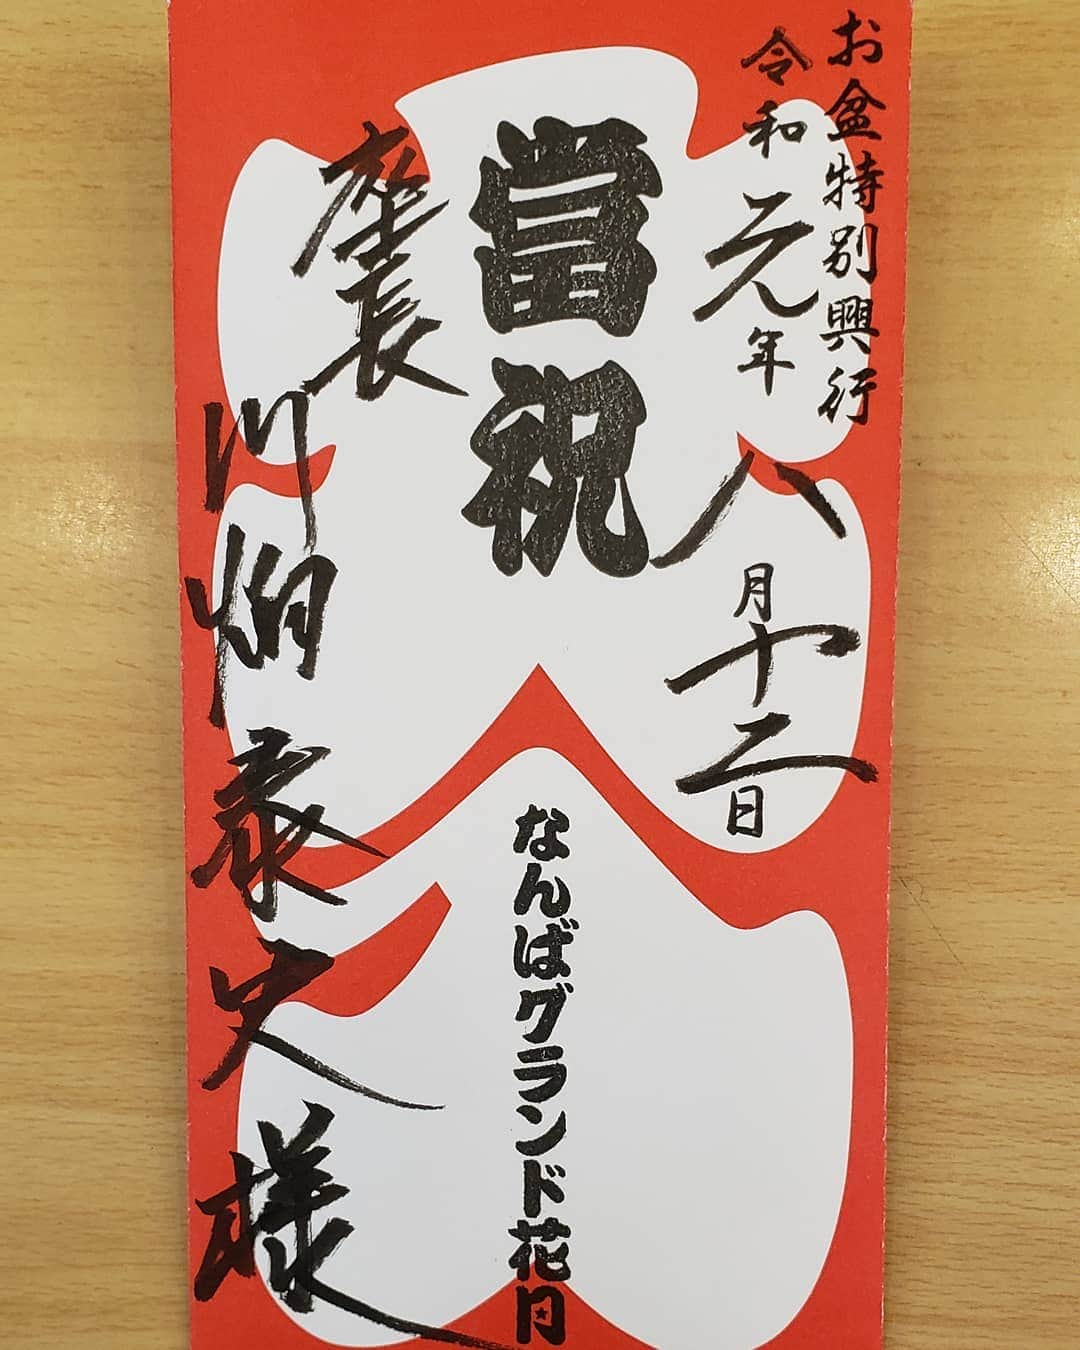 お盆特別興行
令和元年八月十二日
當祝
なんばグランド花月
座長
川畑泰史様